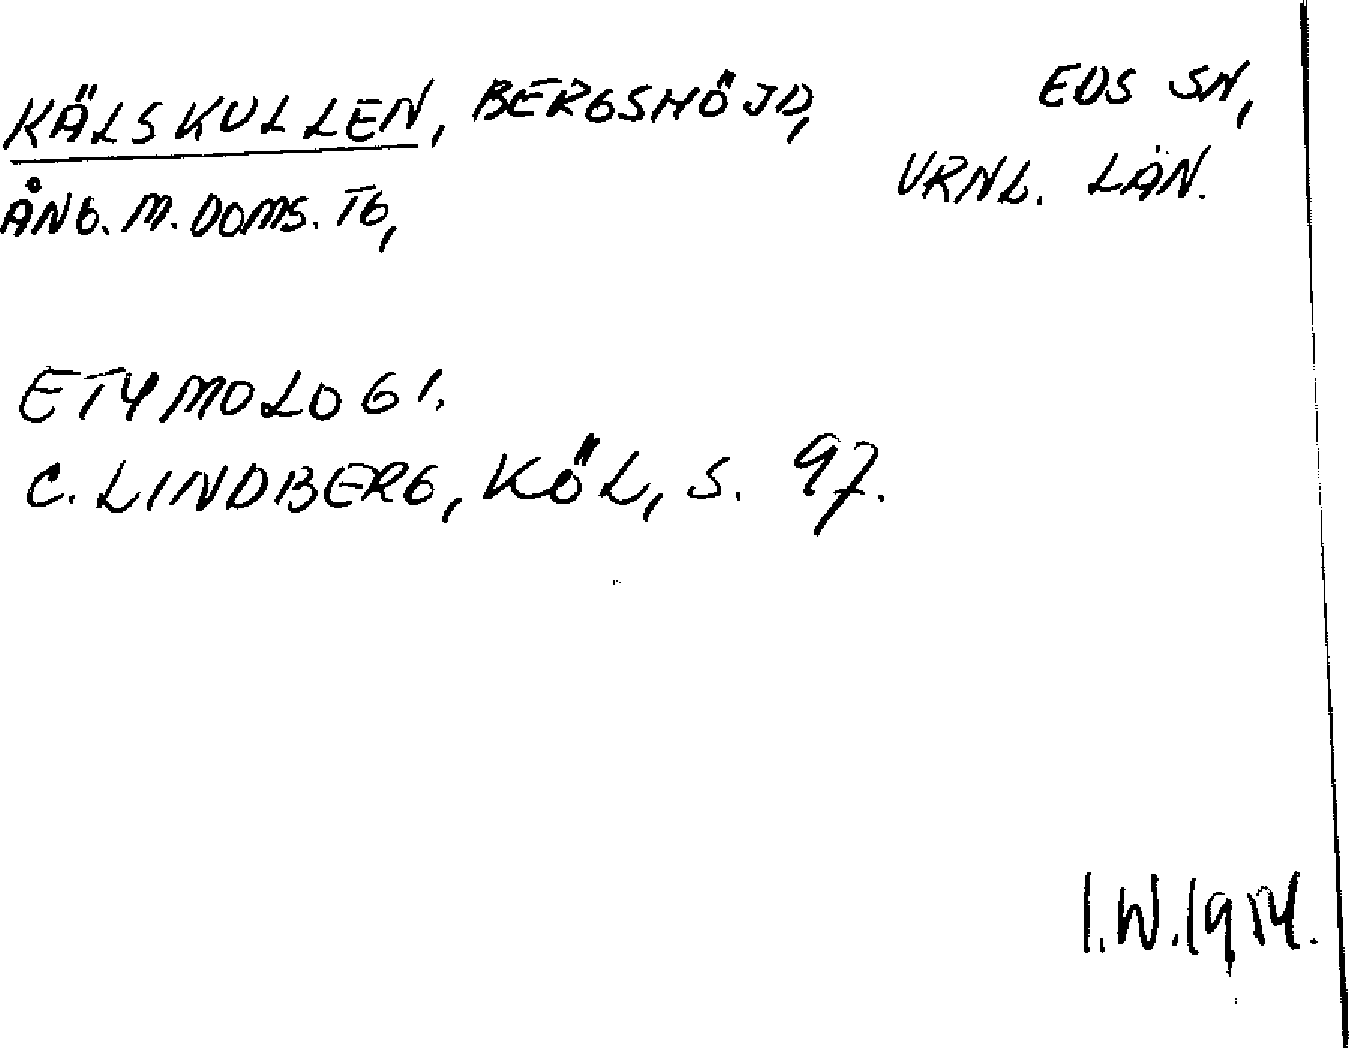 KÄLSKULLEN, BERGSHÖJD, EDS SN,
ÅNG. M. DOMS. TG, VRNL. LÄN.
ETYMOLOGI.
C. LINDBERG, KÖL, S. 97.
I.W.